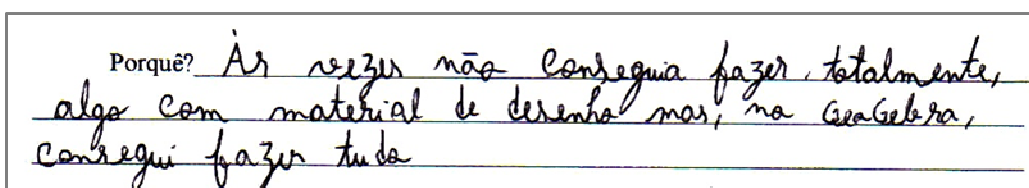 Porquê? Às vezes não conseguia fazer, totalmente,
algo com material de desenho mas, no GeoGebra,
consegui fazer tudo